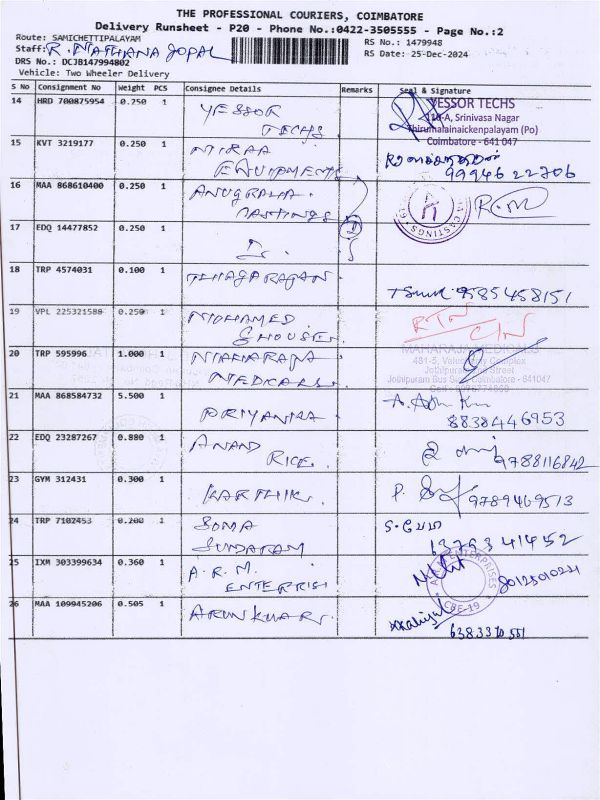 THE PROFESSIONAL COURIERS, COIMBATORE
Delivery Runsheet - P20 - Phone No.:0422-3505555 - Page No.:2
Route: SAMICHETTIPALAYAM
RS No.: 1479948
Staff: R. NATHANA GOPAL
RS Date: 25-Dec-2024
DRS No.: DCJB147994802
Vehicle: Two Wheeler Delivery
S No Consignment No Weight PCS Consignee Details Remarks Seal & Signature
14 HRD 700875954 0.250 1 YESSOR TECHS
YESSOR TECHS
Srinivasa Nagar
Thirumalainaickenpalayam (Po)
Coimbatore - 641 047
15 KVT 3219177 0.250 1
EQUIPMENTS
9994622706
16 MAA 868610400 0.250 1 ANUGRAHA
CASTINGS
17 EDQ 14477852 0.250 1
18 TRP 4574031 0.100 1 THAGARAJAN
9585458151
19 VPL 225321580 0.250 1 MOHAMED
GHOUSE
RTN
20 TRP 595996 1.000 1 MAHARAJA
MEDICALS
MAHARAJA MEDICALS
Complex
Jothipuram Bus Coimbatore - 641047
21 MAA 868584732 5.500 1 PRIYANKA
8838446953
22 EDQ 23287267 0.880 1 ANAND
RICE
9788116842
23 GYM 312431 0.300 1 KARTHIK
9789469513
24 TRP 7102453 0.200 1 SOMA
SUNDARAM
6379341452
25 IXM 303399634 0.360 1 A.R.M.
ENTERPRISE
ENTERPRISES
CBE-19
26 MAA 109945206 0.505 1 ARUNKUMAR